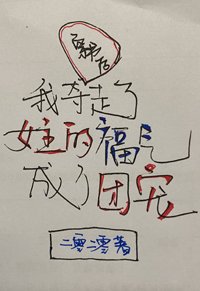 穿书后
我夺走了
女主的福气
成了团宠
著